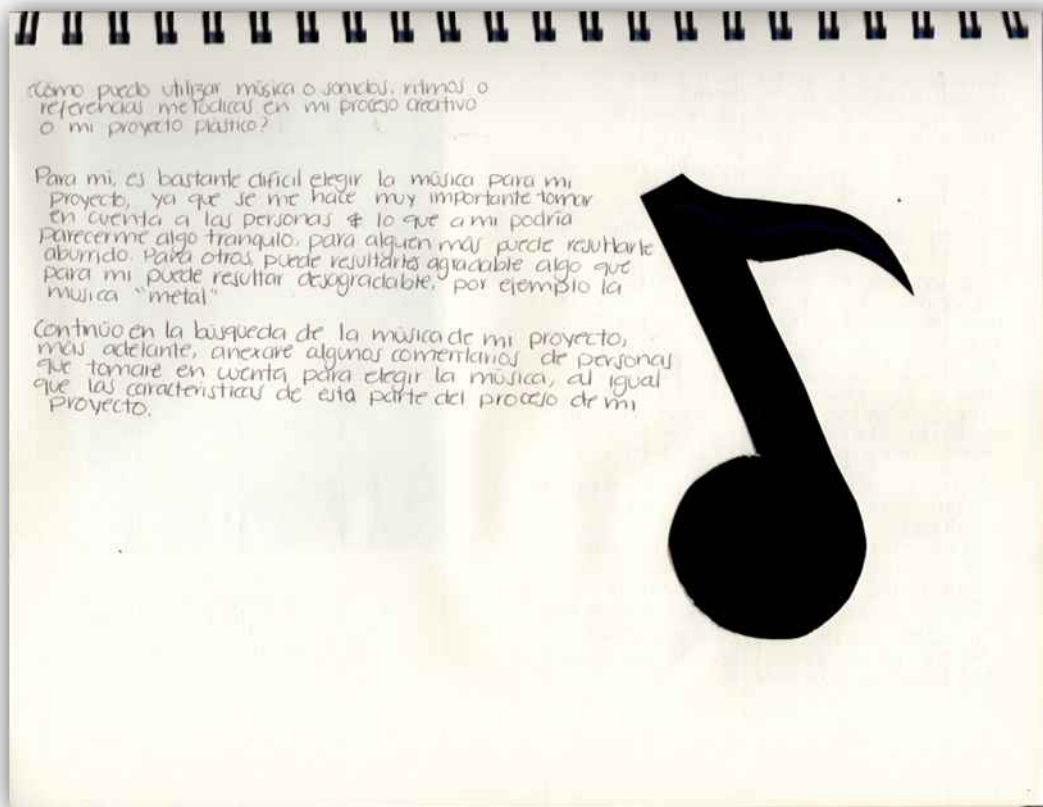 ¿Cómo puedo utilizar música o sonidos, ritmos o
referencias melódicas en mi proceso creativo
o mi proyecto plástico?
Para mi, es bastante dificil elegir la música para mi
proyecto, ya que se me hace muy importante tomar
en cuenta a las personas & lo que a mi podría
parecerme algo tranquilo, para alguien más puede resultarle
aburrido. Para otros, puede resultarles agradable algo que
para mi puede resultar desagradable, por ejemplo la
musica "metal"
Continúo en la búsqueda de la música de mi proyecto,
más adelante, anexare algunos comentarios de personas
que tomaré en cuenta para elegir la música, al igual
que las caracteristicas de esta parte del proceso de mi
proyecto.